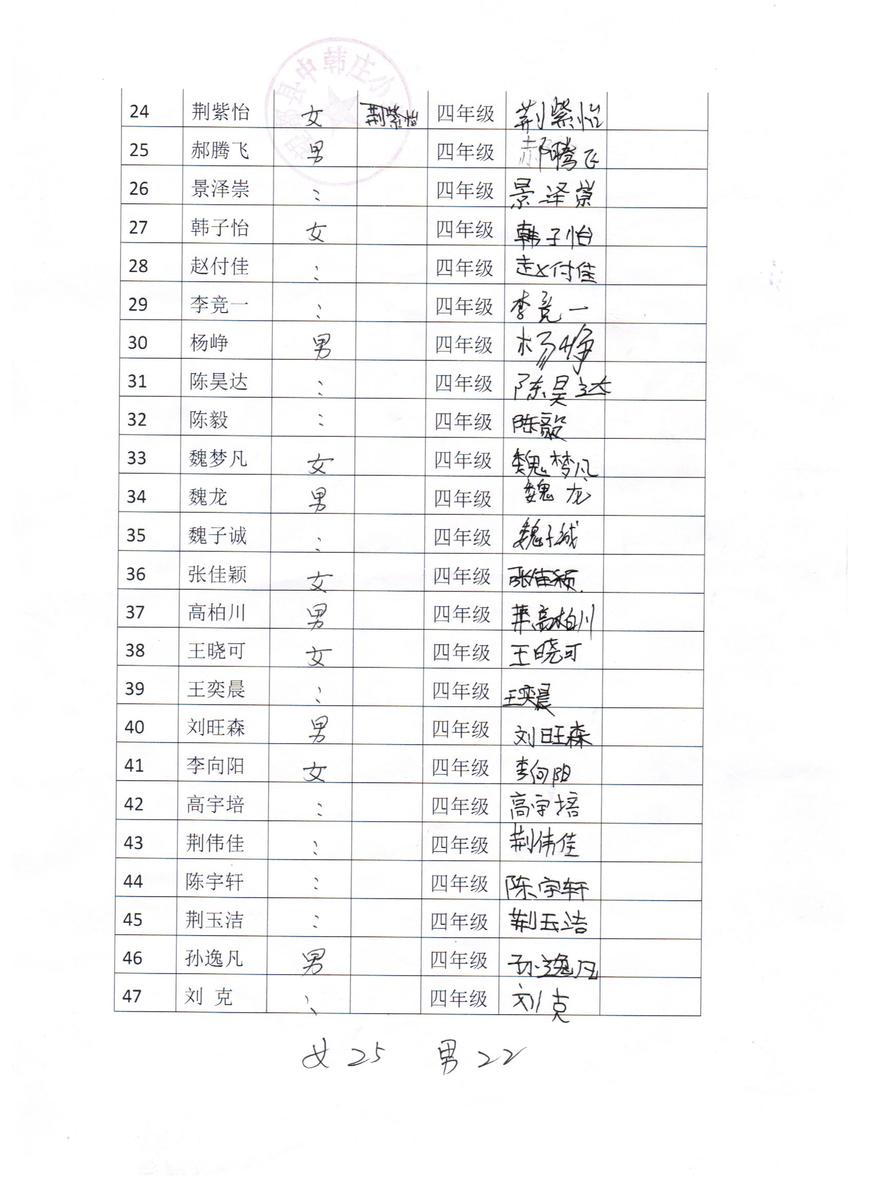 中韩庄小
24 荆紫怡 女 荆紫怡 四年级 荆紫怡
25 郝腾飞 男 四年级 郝腾飞
26 景泽崇 : 四年级 景泽崇
27 韩子怡 女 四年级 韩子怡
28 赵付佳 : 四年级 赵付佳
29 李竞一 : 四年级 李竟一
30 杨峥 男 四年级 杨峥
31 陈昊达 : 四年级 陈昊达
32 陈毅 : 四年级 陈毅
33 魏梦凡 女 四年级 魏梦凡
34 魏龙 男 四年级 魏龙
35 魏子诚 : 四年级 魏子诚
36 张佳颖 女 四年级 张佳颖
37 高柏川 男 四年级 高柏川
38 王晓可 女 四年级 王晓可
39 王奕晨 : 四年级 王奕晨
40 刘旺森 男 四年级 刘旺森
41 李向阳 女 四年级 李向阳
42 高宇培 : 四年级 高宇培
43 荆伟佳 : 四年级 荆伟佳
44 陈宇轩 : 四年级 陈宇轩
45 荆玉洁 : 四年级 荆玉洁
46 孙逸凡 男 四年级 孙逸凡
47 刘 克 : 四年级 刘克
女 25 男 22